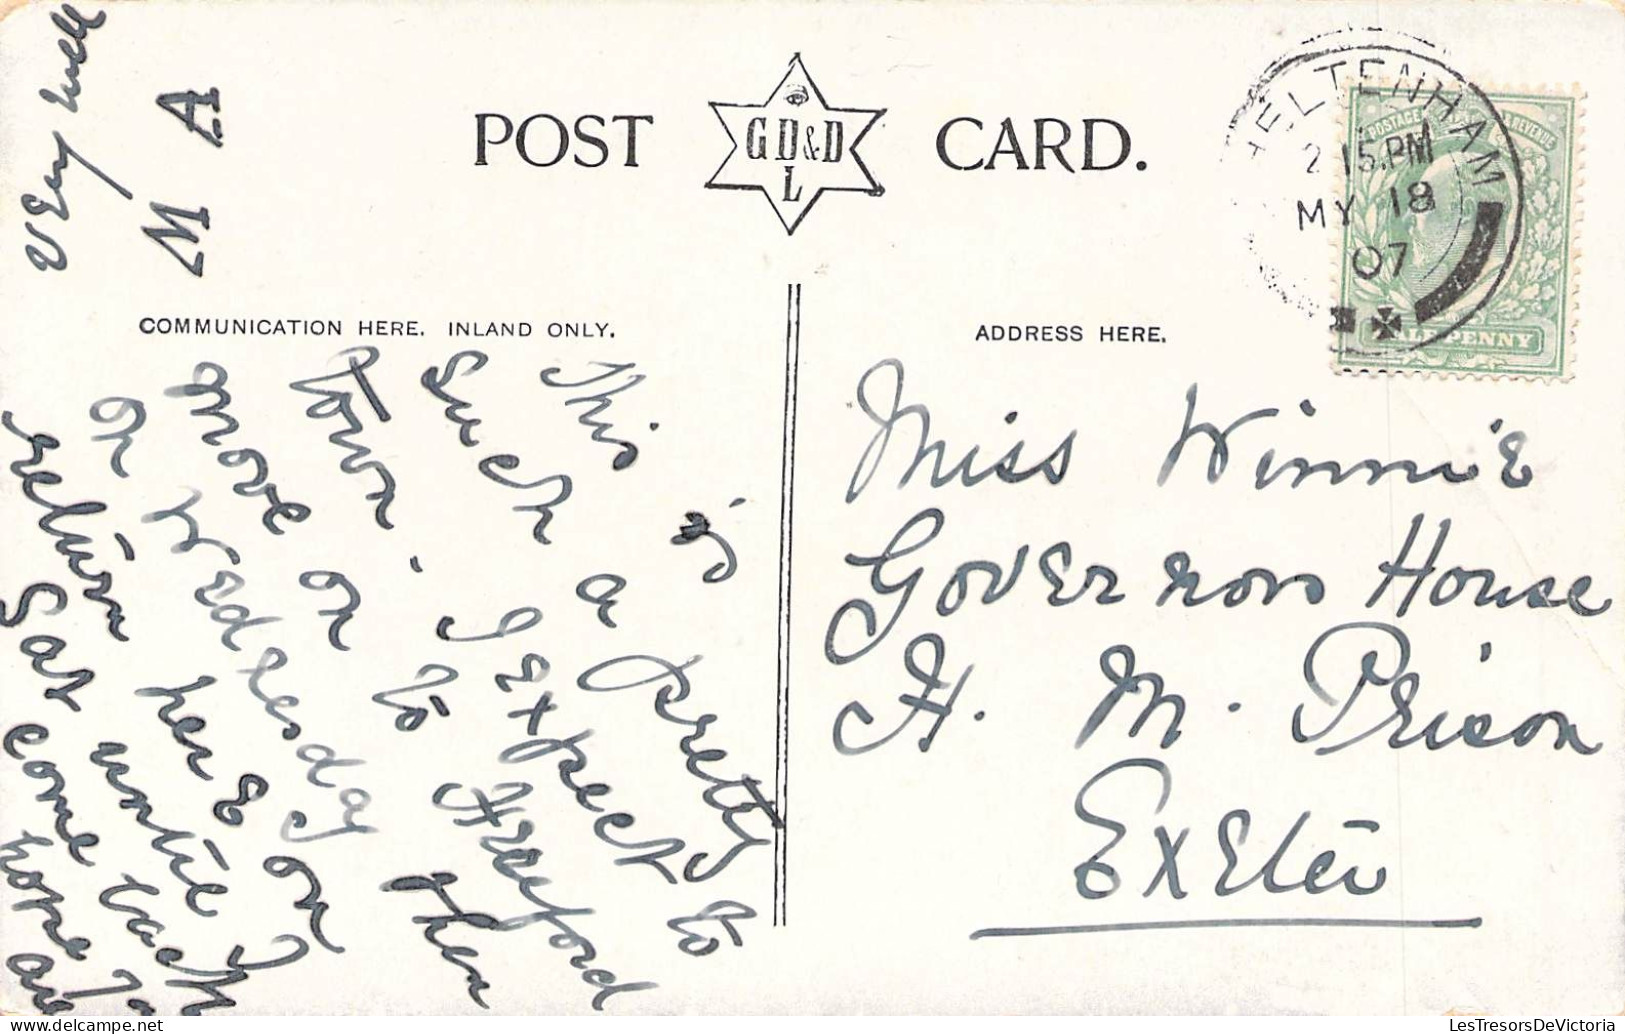 POST CARD.
G D & D
L
CHELTENHAM
2 15.PM
MY 18
07
POSTAGE REVENUE
HALFPENNY
COMMUNICATION HERE. INLAND ONLY.
ADDRESS HERE.
This is
such a pretty
town. I expect to
move on to Hereford
on Wednesday then
return here on
Sat until I
come back
hope
are
very well
M A
Miss Winnie
Governors House
H. M. Prison
Exeter
LesTresorsDeVictoria